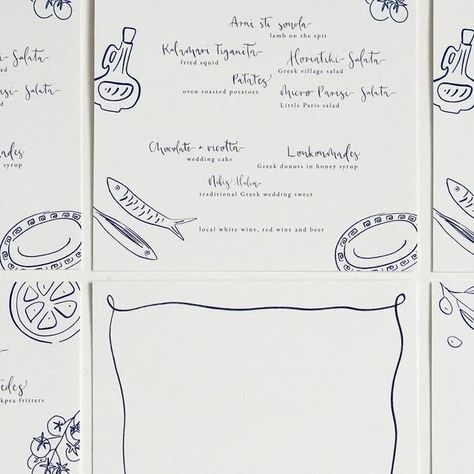 Arni sti souvla
lamb on the spit
Kalamari Tiganita
fried squid
Horiatiki Salata
Greek village salad
Patates
oven roasted potatoes
Micro Parisi Salata
Little Paris salad
Chocolate + ricotta
wedding cake
Loukoumades
Greek donuts in honey syrup
traditional Greek wedding sweet
local white wine, red wine and beer
Salata
salad
Salata
salad
syrup
fritters